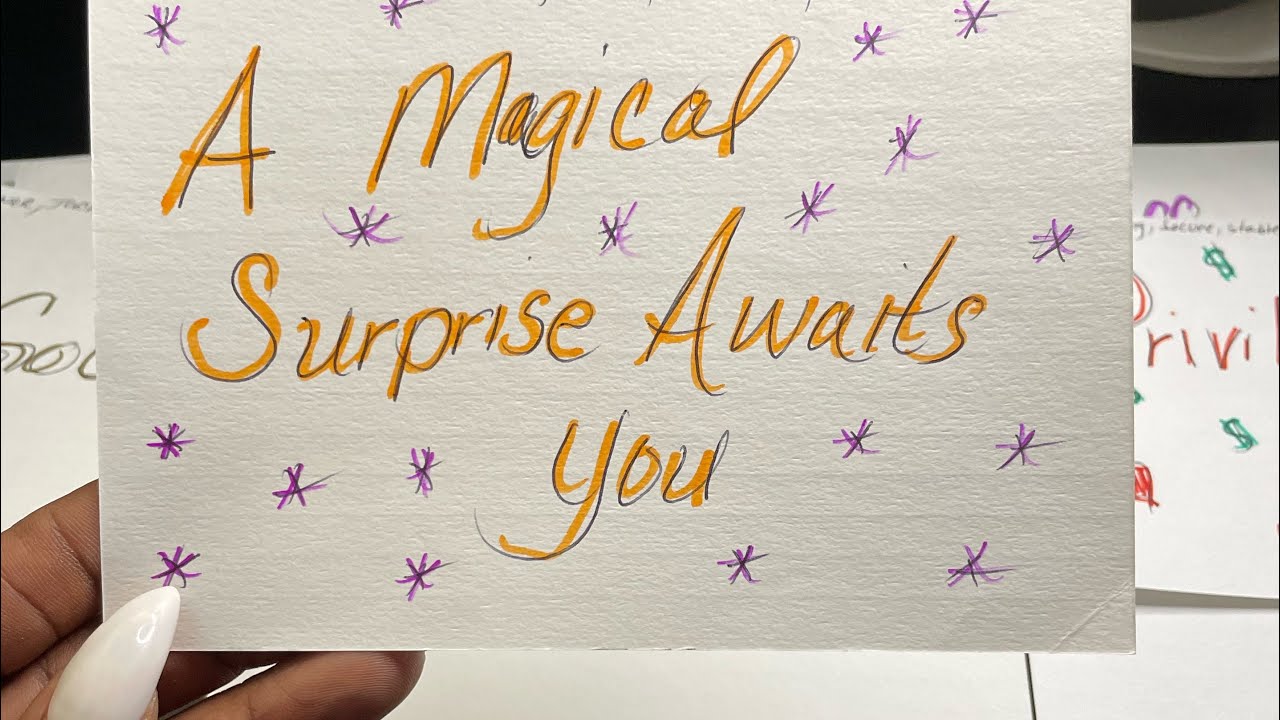 A Magical
Surprise Awaits
you
g, secure, stable
rivi
$
$